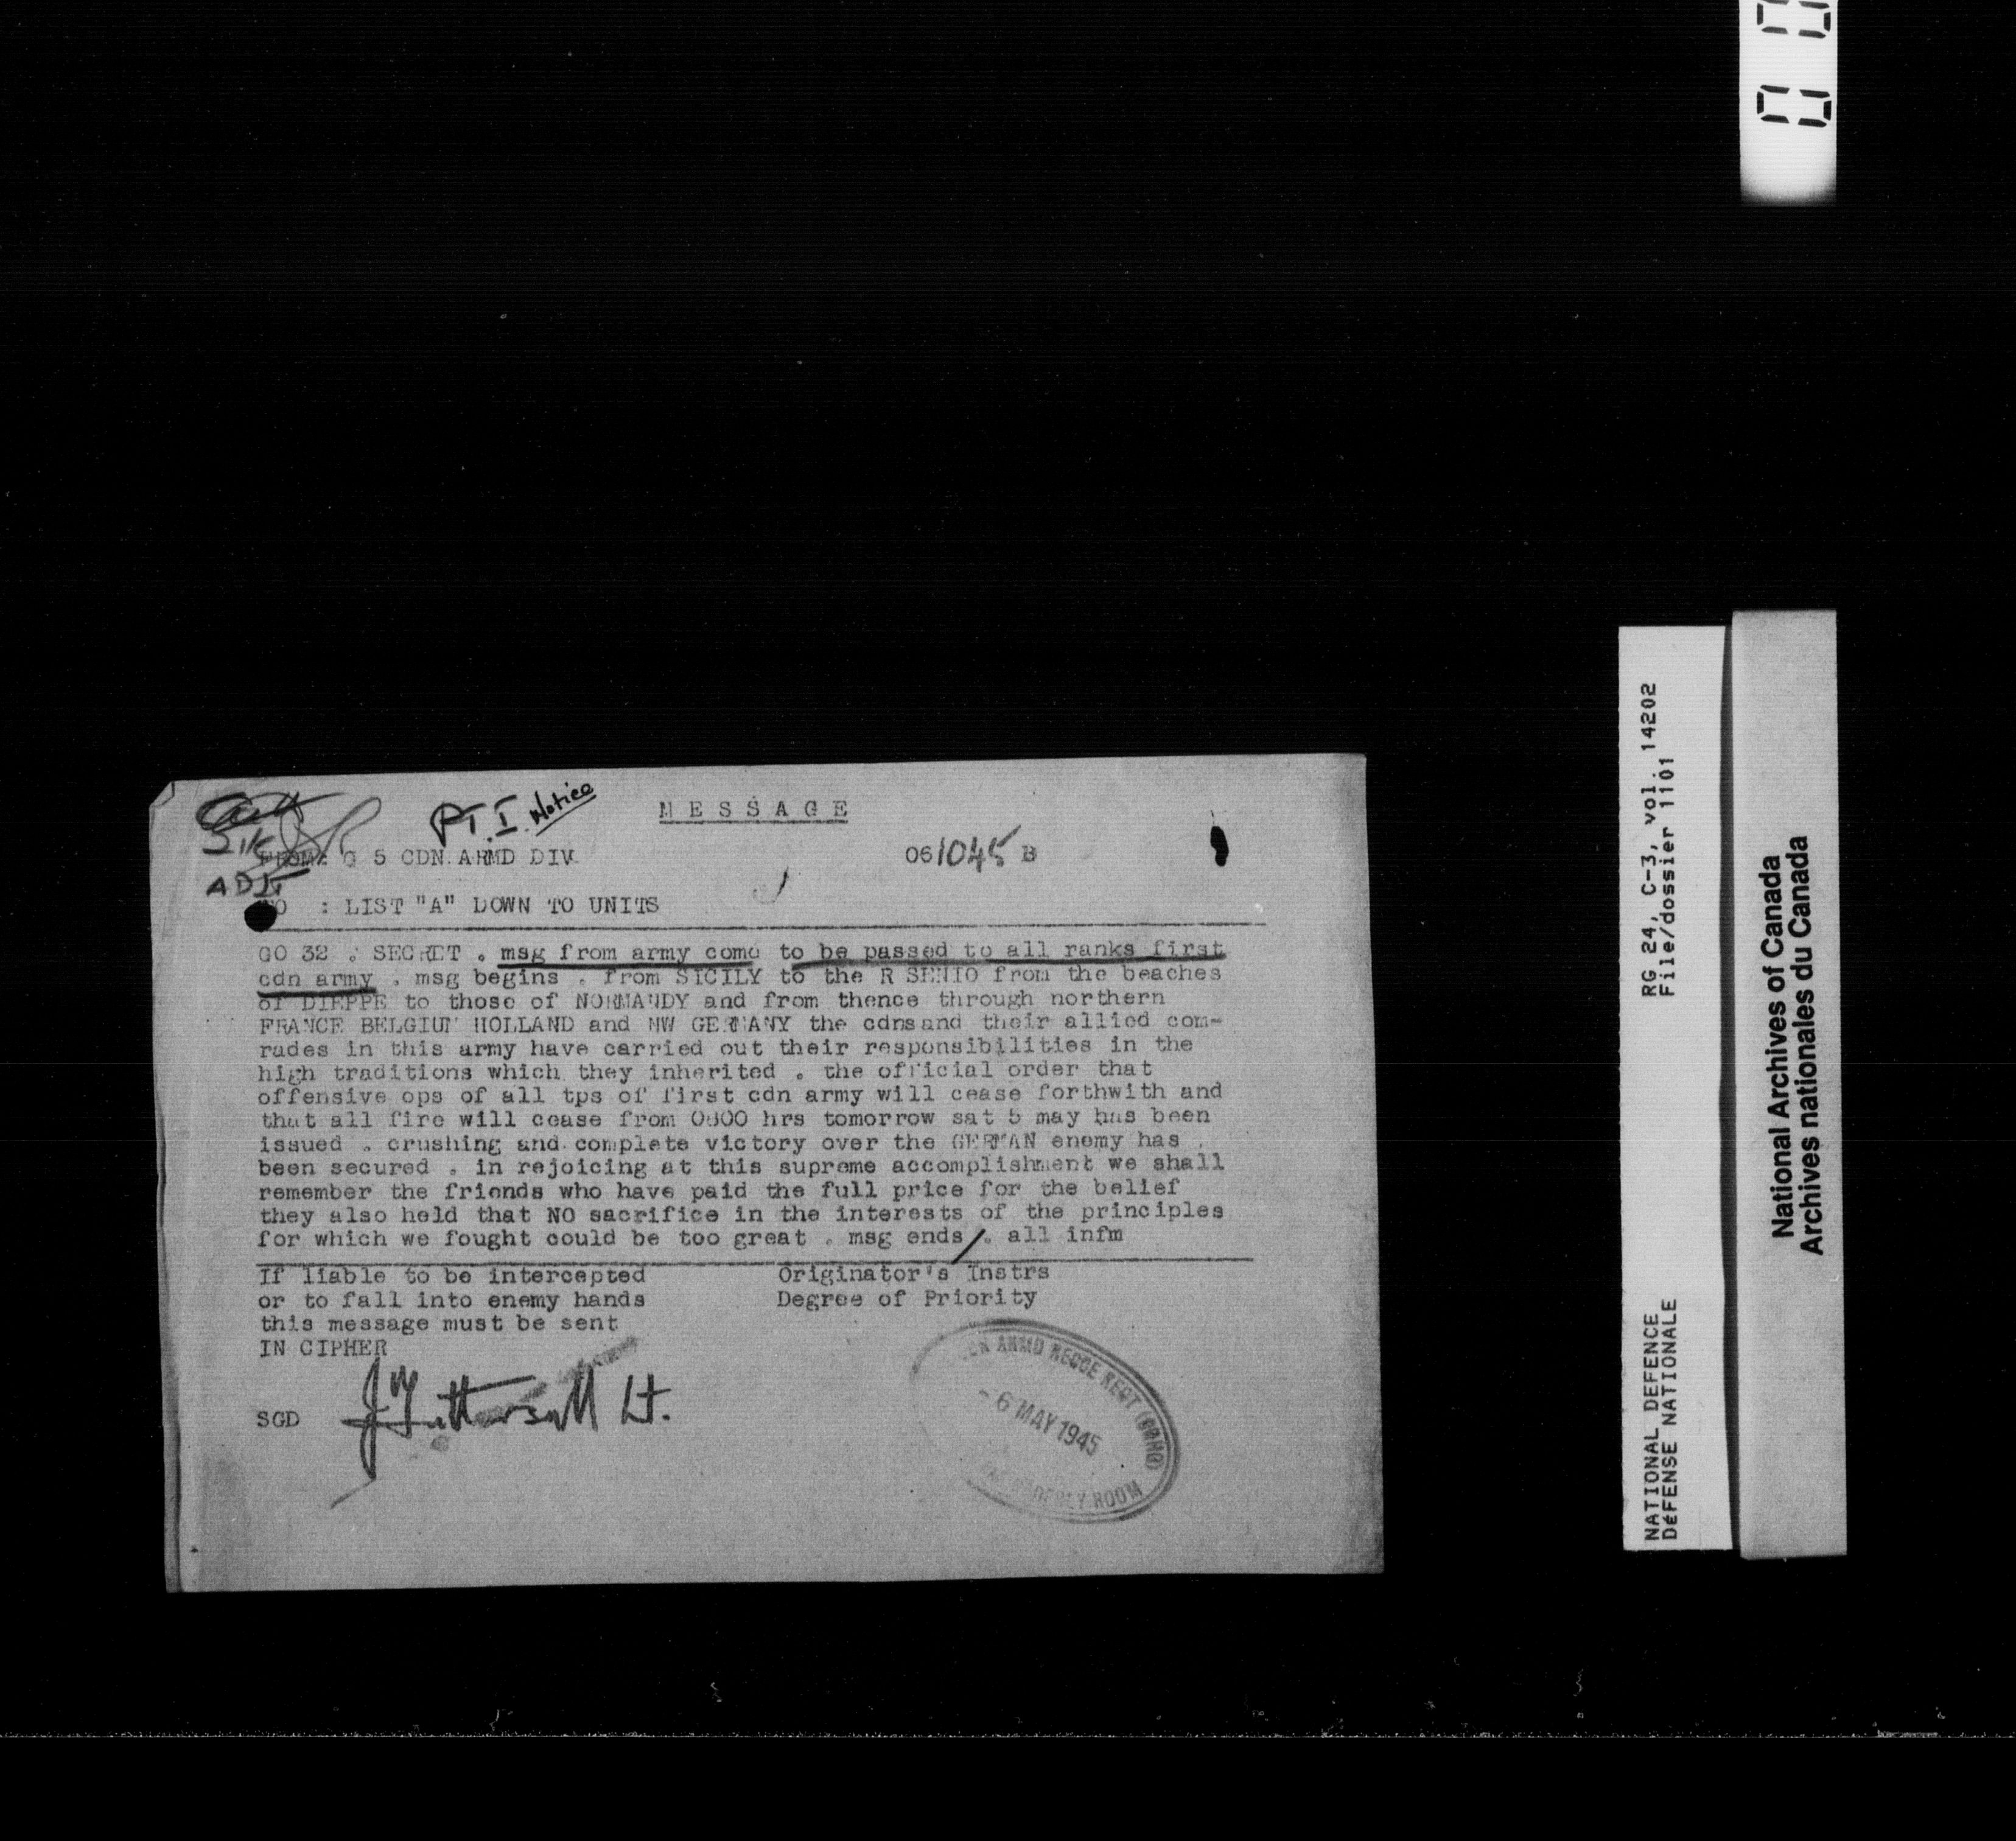 PT. I. Notice
M E S S A G E
FROM: G 5 CDN ARMD DIV
061045 B
ADJT
TO : LIST "A" DOWN TO UNITS
GO 32 . SECRET . msg from army comd to be passed to all ranks first
cdn army . msg begins . from SICILY to the R SENIO from the beaches
of DIEPPE to those of NORMANDY and from thence through northern
FRANCE BELGIUM HOLLAND and NW GERMANY the cdns and their allied com-
rades in this army have carried out their responsibilities in the
high traditions which they inherited . the official order that
offensive ops of all tps of first cdn army will cease forthwith and
that all fire will cease from 0800 hrs tomorrow sat 5 may has been
issued . crushing and complete victory over the GERMAN enemy has
been secured . in rejoicing at this supreme accomplishment we shall
remember the friends who have paid the full price for the belief
they also held that NO sacrifice in the interests of the principles
for which we fought could be too great . msg ends . all infm
If liable to be intercepted
or to fall into enemy hands
this message must be sent
IN CIPHER
Originator's Instrs
Degree of Priority
SGD J Tattersall Lt.
ARMD RECCE REGT (GGHG)
- 6 MAY 1945
ORDERLY ROOM
RG 24, C-3, vol. 14202
File/dossier 1101
NATIONAL DEFENCE
DéFENSE NATIONALE
National Archives of Canada
Archives nationales du Canada